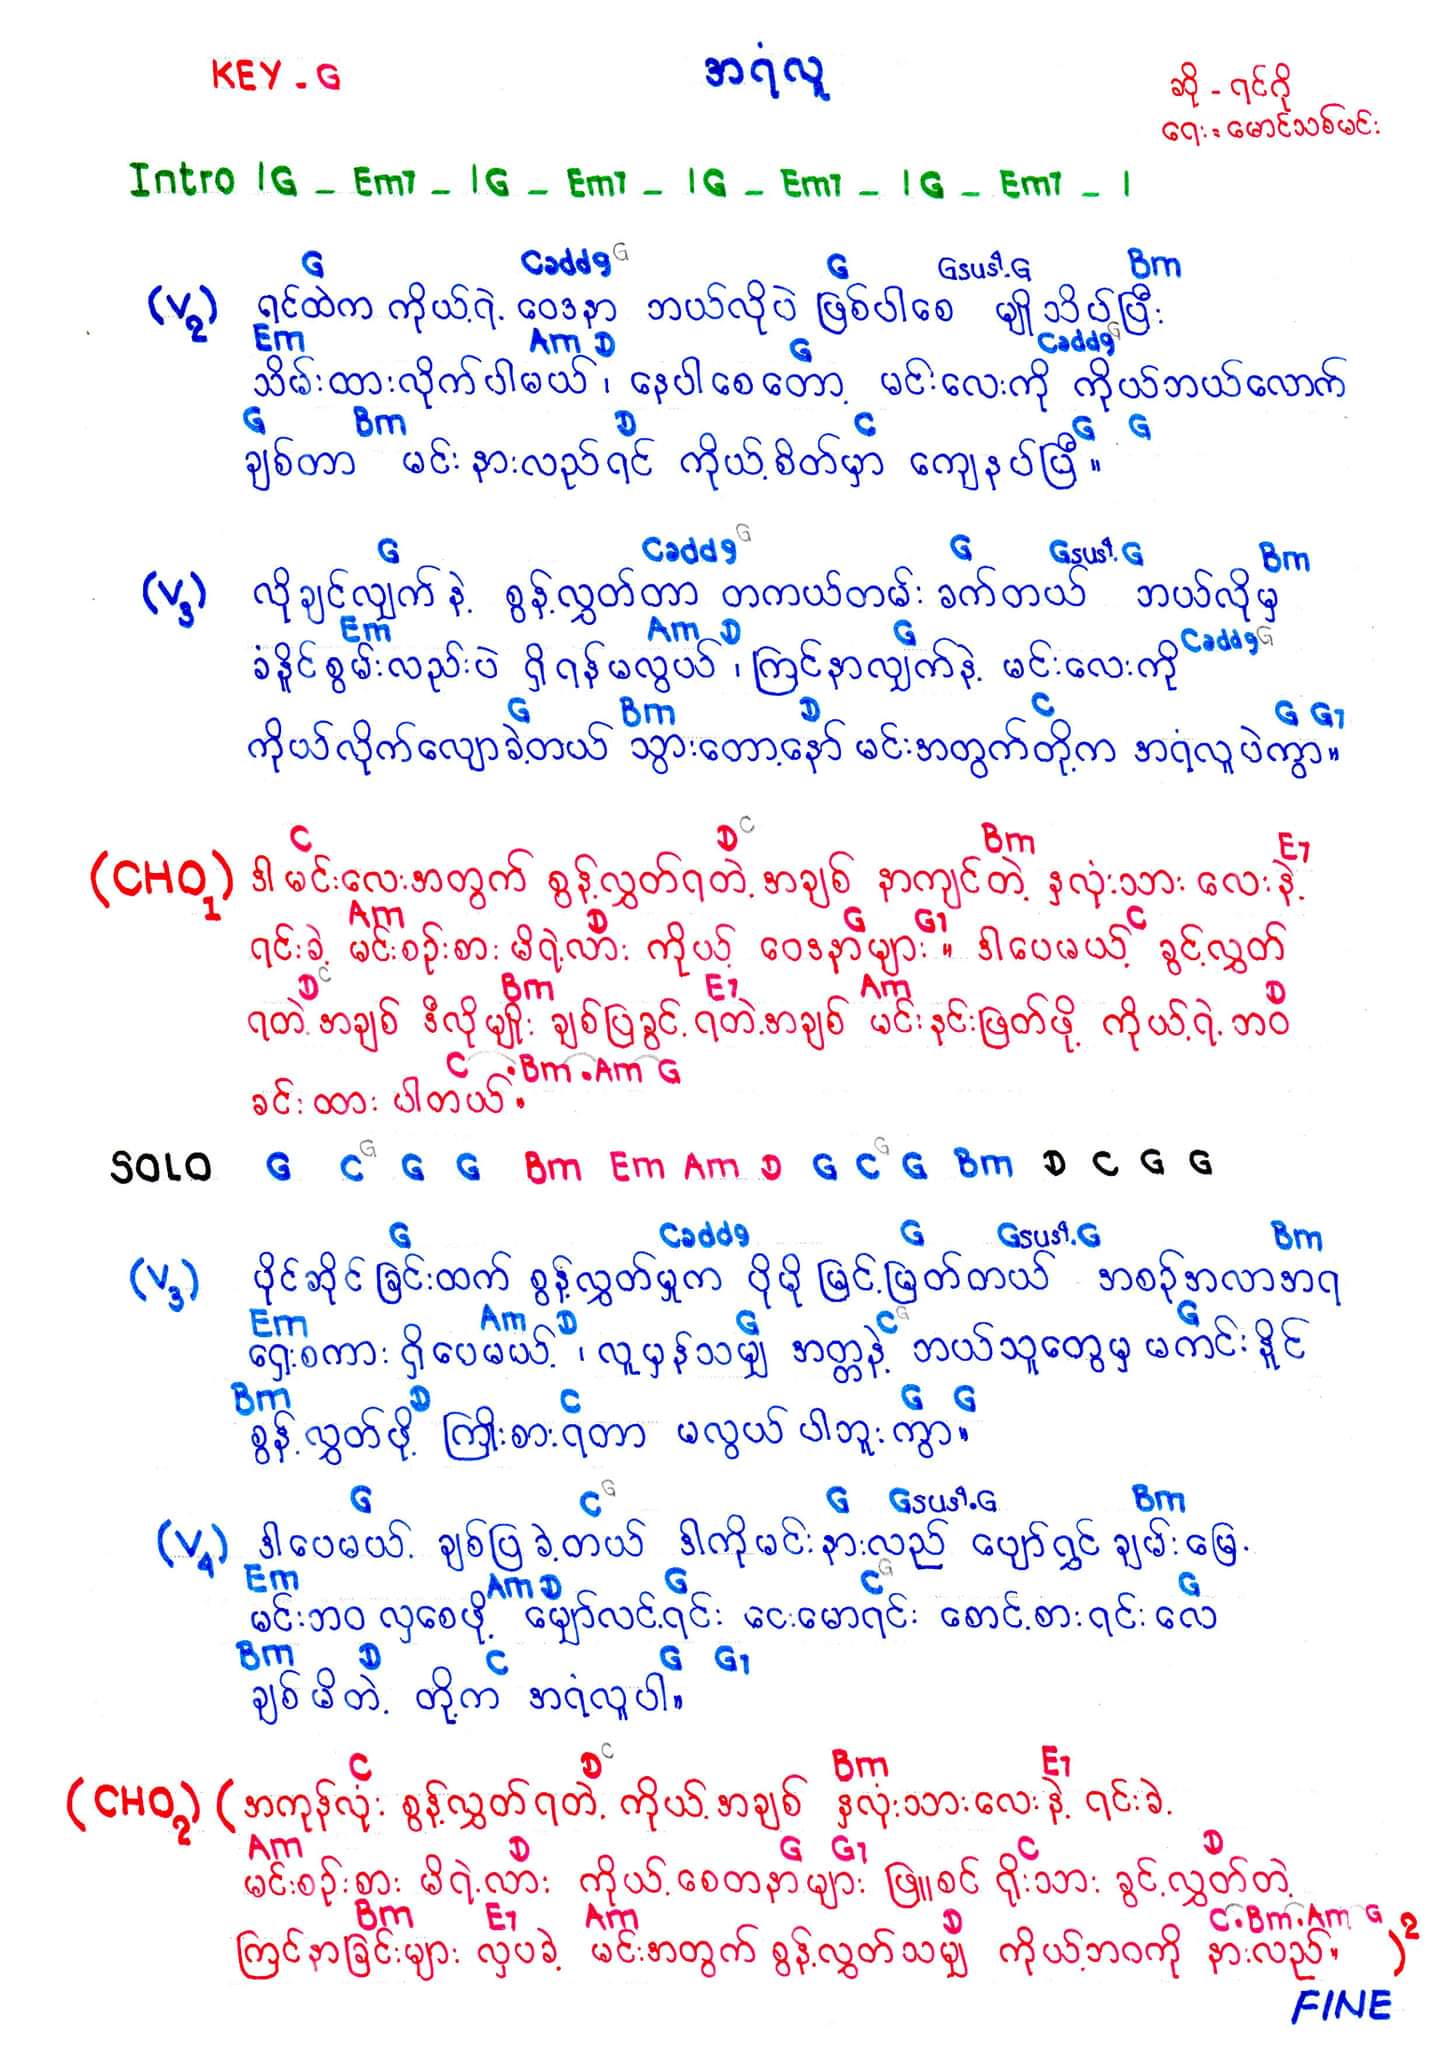 KEY. G
အရံလူ
ဆို - ရင်ဂို
ရေး = မောင်သစ်မင်း
Intro | G _ Em7 _ | G _ Em7 _ | G _ Em7 _ | G _ Em7 _ |
G Cadd9 G G Gsus4.G Bm
(V2) ရင်ထဲက ကိုယ့်ရဲ့ ဝေဒနာ ဘယ်လိုပဲ ဖြစ်ပါစေ မျိုသိပ်ပြီး
Em Am D G Cadd9 G
သိမ်းထားလိုက်ပါမယ်၊ နေပါစေတော့ မင်းလေးကို ကိုယ်ဘယ်လောက်
G Bm D C G G
ချစ်တာ မင်းနားလည်ရင် ကိုယ့်စိတ်မှာ ကျေနပ်ပြီ။
G Cadd9 G G Gsus4.G Bm
(V3) လိုချင်လျှက်နဲ့ စွန့်လွှတ်တာ တကယ်တမ်းခက်တယ် ဘယ်လိုမှ
Em Am D G Cadd9 G
ခံနိူင်စွမ်းလည်းပဲ ရှိရန်မလွယ်၊ ကြင်နာလျှက်နဲ့ မင်းလေးကို
G Bm D C G G7
ကိုယ်လိုက်လျောခဲ့တယ် သွားတော့နော် မင်းအတွက်တို့က အရံလူပဲကွာ။
C D C Bm E7
(CHO1) ဒါမင်းလေးအတွက် စွန့်လွှတ်ရတဲ့အချစ် နာကျင်တဲ့ နှလုံးသားလေးနဲ့
Am D G G7 C
ရင်းခဲ့ မင်းစဉ်းစားမိရဲ့လား ကိုယ့် ဝေဒနာများ။ ဒါပေမယ့် ခွင့်လွှတ်
D C Bm E7 Am D
ရတဲ့အချစ် ဒီလိုမျိုး ချစ်ပြခွင့်ရတဲ့အချစ် မင်းနင်းဖြတ်ဖို့ ကိုယ့်ရဲ့ဘဝ
C .Bm.Am G
ခင်းထားပါတယ်။
SOLO G C G G G Bm Em Am D G C G G Bm D C G G
G Cadd9 G Gsus4.G Bm
(V3) ပိုင်ဆိုင်ခြင်းထက် စွန့်လွှတ်မှုက ပိုမို မြင့်မြတ်တယ် အစဉ်အလာအရ
Em Am D G C G G
ရှေးစကားရှိပေမယ့်၊ လူမှန်သမျှ အတ္တနဲ့ ဘယ်သူတွေမှ မကင်းနိူင်
Bm D C G G
စွန့်လွှတ်ဖို့ ကြိုးစားရတာ မလွယ်ပါဘူးကွာ။
G C G G Gsus4.G Bm
(V4) ဒါပေမယ့် ချစ်ပြခဲ့တယ် ဒါကိုမင်းနားလည် ပျော်ရွှင်ချမ်းမြေ့
Em Am D G C G G
မင်းဘဝလှစေဖို့ မျှော်လင့်ရင်း ငေးမောရင်း စောင့်စားရင်းလေ
Bm D C G G7
ချစ်မိတဲ့ တို့က အရံလူပါ။
C D C Bm E7
(CHO2) ( အကုန်လုံး စွန့်လွှတ်ရတဲ့ ကိုယ့်အချစ် နှလုံးသားလေးနဲ့ ရင်းခဲ့
Am D G G7 C D
မင်းစဉ်းစားမိရဲ့လား ကိုယ့်စေတနာများ ဖြူစင်ရိုးသား ခွင့်လွှတ်တဲ့
Bm E7 Am D C.Bm.Am G
ကြင်နာခြင်းများ လှပခဲ့ မင်းအတွက်စွန့်လွှတ်သမျှ ကိုယ့်ဘဝကို နားလည်။ )2
FINE